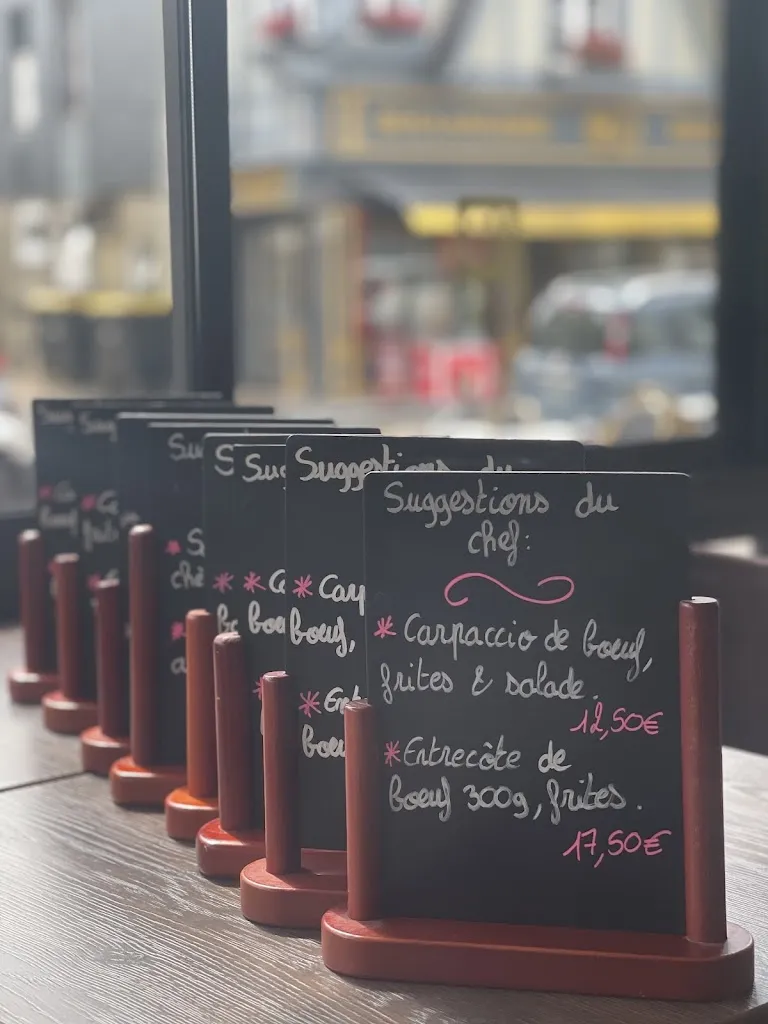 Suggestions du
chef:
* Carpaccio de boeuf,
frites & salade.
12,50€
* Entrecôte de
boeuf 300g, frites.
17,50€
Suggestions du
* Car
boeuf,
* Ent
boeu
Sug
* C
boe